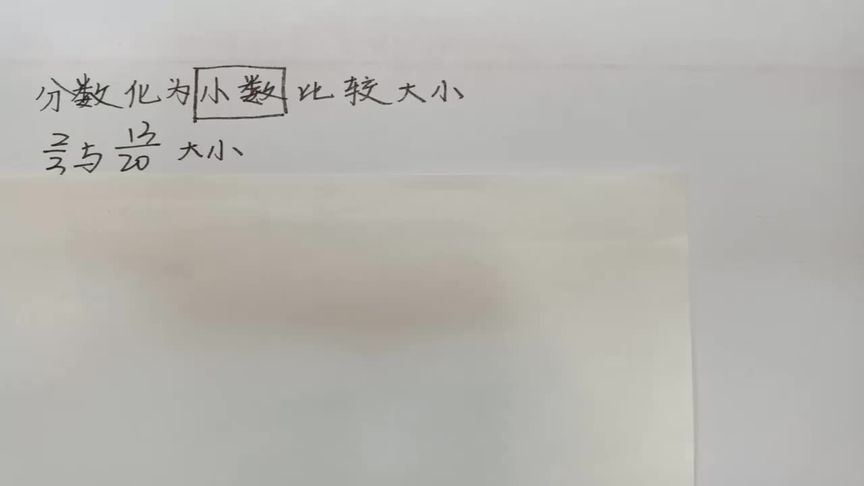 分数化为小数比较大小
2/3与13/20 大小